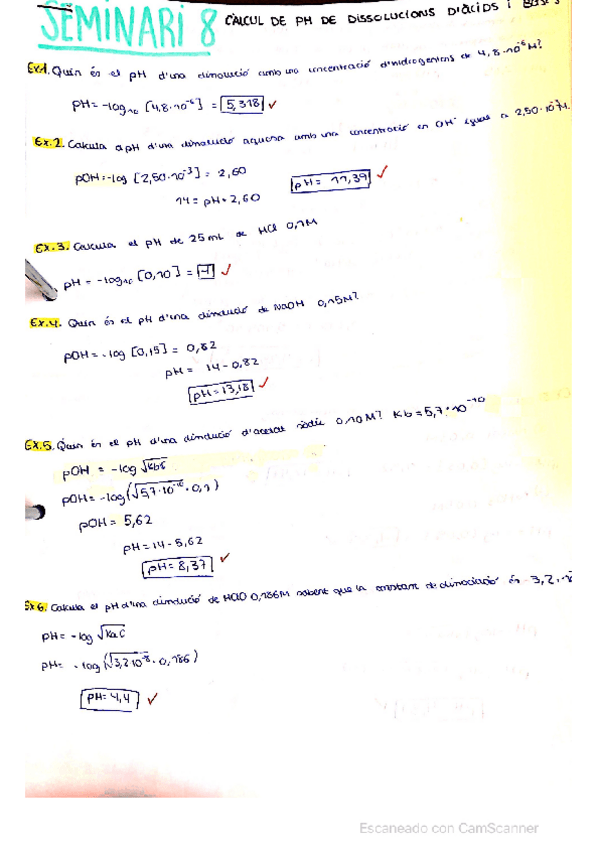 SEMINARI 8 CÀLCUL DE PH DE DISSOLUCIONS D'ÀCIDS I BASES
Ex.1. Quin és el pH d'una dissolució amb una concentració d'hidrogenions de 4,8·10⁻⁶M?
pH=-log₁₀ [4,8·10⁻⁶] = 5,318 ✓
Ex.2. Calcula el pH d'una dissolució aquosa amb una concentració en OH⁻ igual a 2,50·10⁻³M.
pOH=-log [2,50·10⁻³] = 2,60
14 = pH+2,60
pH= 11,39 ✓
Ex.3. Calcula el pH de 25mL de HCl 0,1M
pH = -log₁₀ [0,10] = 1 ✓
Ex.4. Quin és el pH d'una dissolució de NaOH 0,15M?
pOH=-log [0,15] = 0,82
pH = 14-0,82
pH=13,18 ✓
Ex.5. Quin és el pH d'una dissolució d'acetat sòdic 0,10M? Kb=5,7·10⁻¹⁰
pOH = -log √KbC
pOH=-log(√5,7·10⁻¹⁰·0,1)
pOH= 5,62
pH=14-5,62
pH= 8,37 ✓
Ex6. Calcula el pH d'una dissolució de HClO 0,186M sabent que la constant de dissociació és 3,2·
pH= -log √KaC
pH= -log(√3,2·10⁻⁸·0,186)
pH= 4,4 ✓
Escaneado con CamScanner